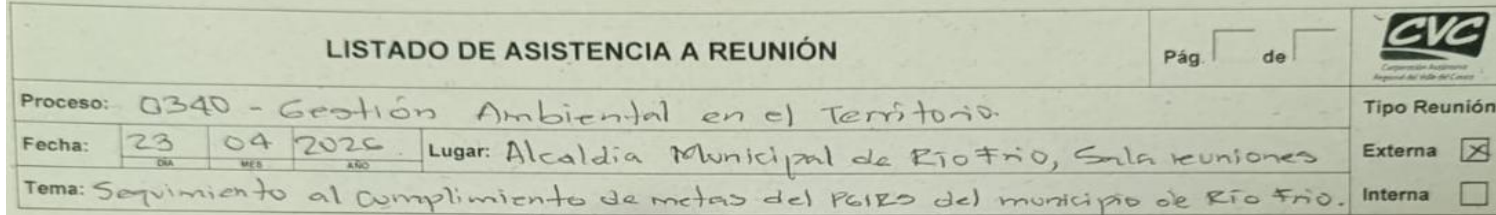 LISTADO DE ASISTENCIA A REUNIÓN
Pág. de
CVC
Corporación Autónoma
Regional del Valle del Cauca
Proceso: 0340 - Gestión Ambiental en el Territorio.
Tipo Reunión
Fecha: 23 04 2026 Lugar: Alcaldia Municipal de RioFrio, Sala reuniones
DÍA MES AÑO
Externa X
Tema: Seguimiento al Cumplimiento de metas del PGIRS del municipio de Rio Frio.
Interna